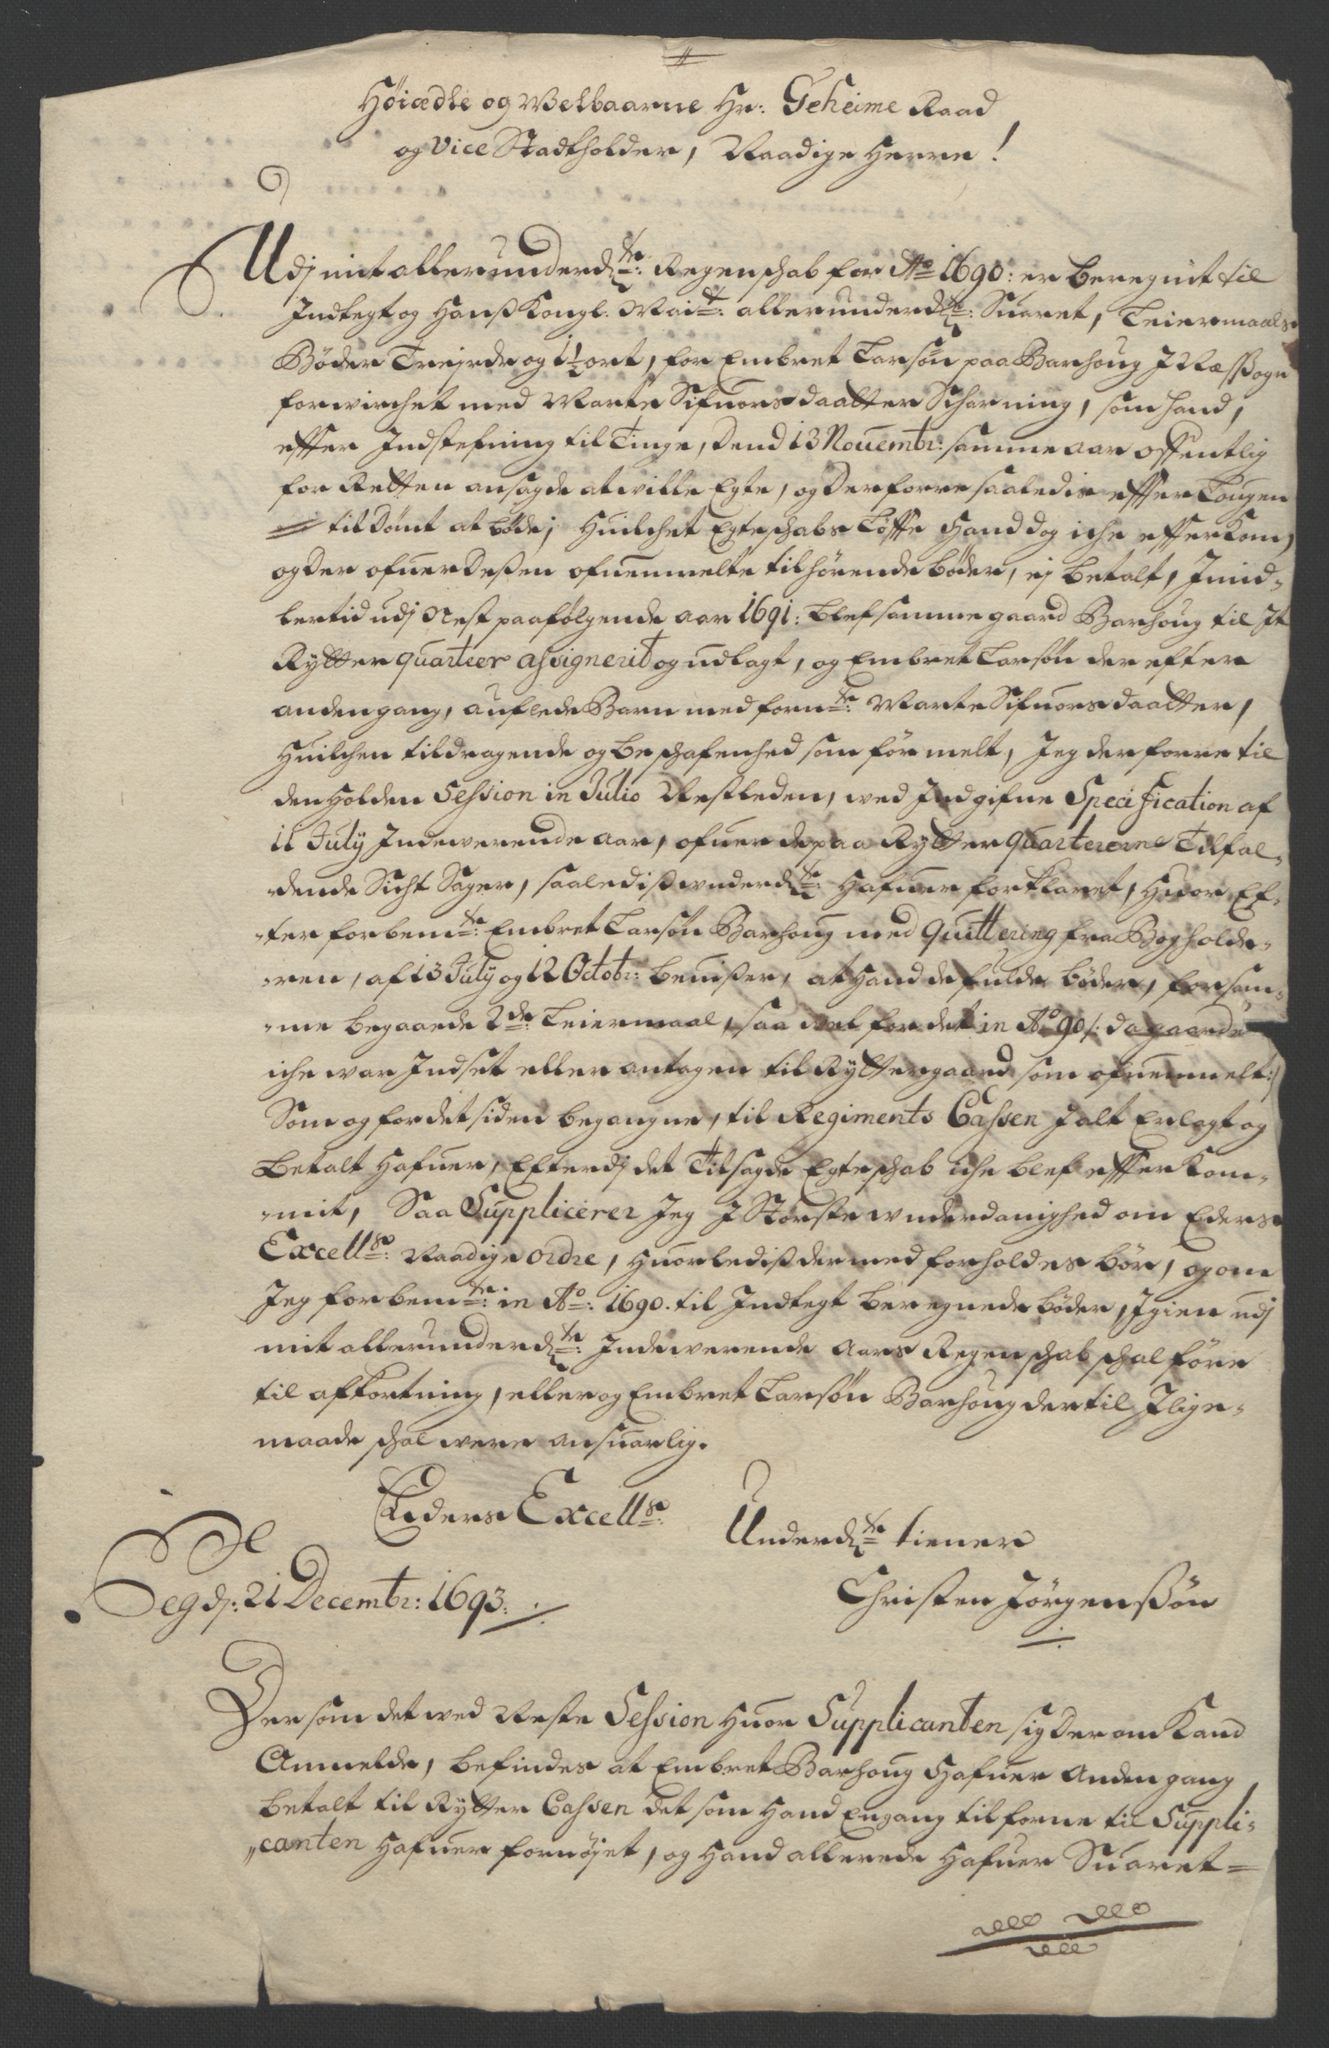 Høiædle og Velbaarne Hr: Geheime Raad
og Vice Stadtholder, Naadige Herre!
Udj mit allerunderd:te Regenschab for Ao 1690: er beregnit til
Indtegt og Hans Kongl: Mai:tt allerunderd:te Suaret, Leiermaals
Bøder Trej rdr og 1½ ort, for Embret Larsøn paa Barhoug I Næs Sogn
forwirchet med Marte Sifuorsdaatter Scharning, som hand,
effter Indstefning til Tinge, dend 13 Nouembr: samme aar offentlig
for Retten ansagde at wille Egte, og derforre saaledis effter Lougen
til dømt at bøde; Huilchet Egteschabs Løffte hand dog iche effterkom,
og der ofuer dessen ofuenmelte tilhørende bøder, ej betalt, Imid-
lertid udj Nest paafølgende aar 1691: blef samme gaard Barhoug til It
Rytter quarteer assignerit og udlagt, og Embret Larsøn der efter
anden gang, auflede Barn med forn:te Marte Sifuorsdaatter,
Huilchen tildragende og beschafenhed som før melt, Jeg derforre til
den holden Session in Julio Nestleden, wed Indgifne Specification af
11 July Indewerende aar, ofuer de paa Rytter quartererne Tilfal-
dende Sicht Sager, saaledis underd:te hafuer forklaret, Huor Ef-
-ter forbem:te Embret Larsøn Barhoug med quittering fra Bogholde-
-ren, af 13 July og 12 Octobr: beuiser, at hand de fulde bøder, for sam-
-me begaaede 2de Leiermaal, saa wel for det in Ao 90 /: da gaarde
iche war Indset eller antagen til Ryttergaard som ofuenmelt:/
Som og for det siden begangne, til Regiments Cassen I alt Erlagt og
Betalt hafuer, Efterdj det Tilsagde Egteschab iche blef effterkom-
-mit, Saa Supplicerer Jeg I Største underdanighed om Eders
Excell:se Naadige ordre, Huorledis dermed forholdes bør, og om
Jeg forbem:te in Ao: 1690. til Indtegt beregnede bøder, Igien udj
mit allerunderd:te Indewerende Aars Regenschab schal føre
til afkortning, eller og Embret Larsøn Barhoug dertil Ilige-
maade schal were ansuarlig.
Eders Excell:se
Underd:te tiener
Seg dj: 21 Decembr: 1693.
Christen Jørgenssøn
Dersom det wed Neste Session huor Supplicanten sig derom kand
Anmelde, befindes at Embret Barhoug hafuer Anden gang
betalt til Rytter Cassen det som hand Engang tilforne til Suppli-
canten hafuer fornøjet, og hand allerede hafuer Suaret